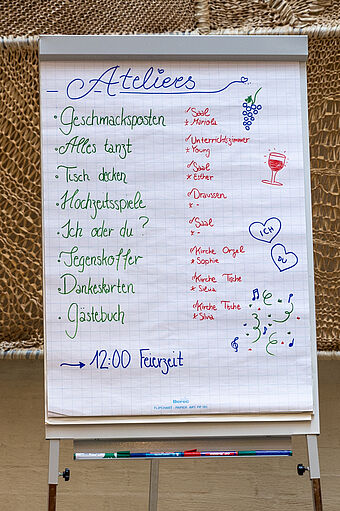 Ateliers
Geschmacksposten
Saal
* Mariola
Alles tanzt
Unterrichtszimmer
* Young
Tisch decken
Saal
* Esther
Hochzeitsspiele
Draussen
* -
Ich oder du?
Saal
* -
ICH
DU
Segenskoffer
Kirche Orgel
* Sophie
Dankeskarten
Kirche Tische
* Silvia
Gästebuch
Kirche Tische
* Silvia
→ 12:00 Feierzeit